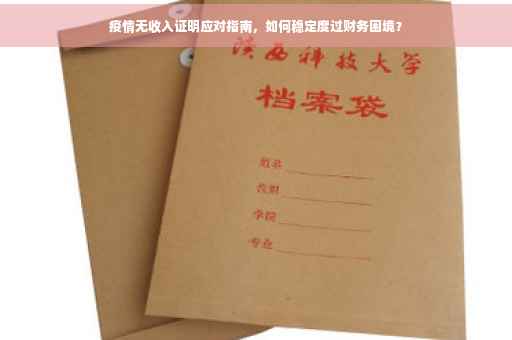 疫情无收入证明应对指南，如何稳定度过财务困境？
陕西科技大学
档案袋
姓名
学院
专业